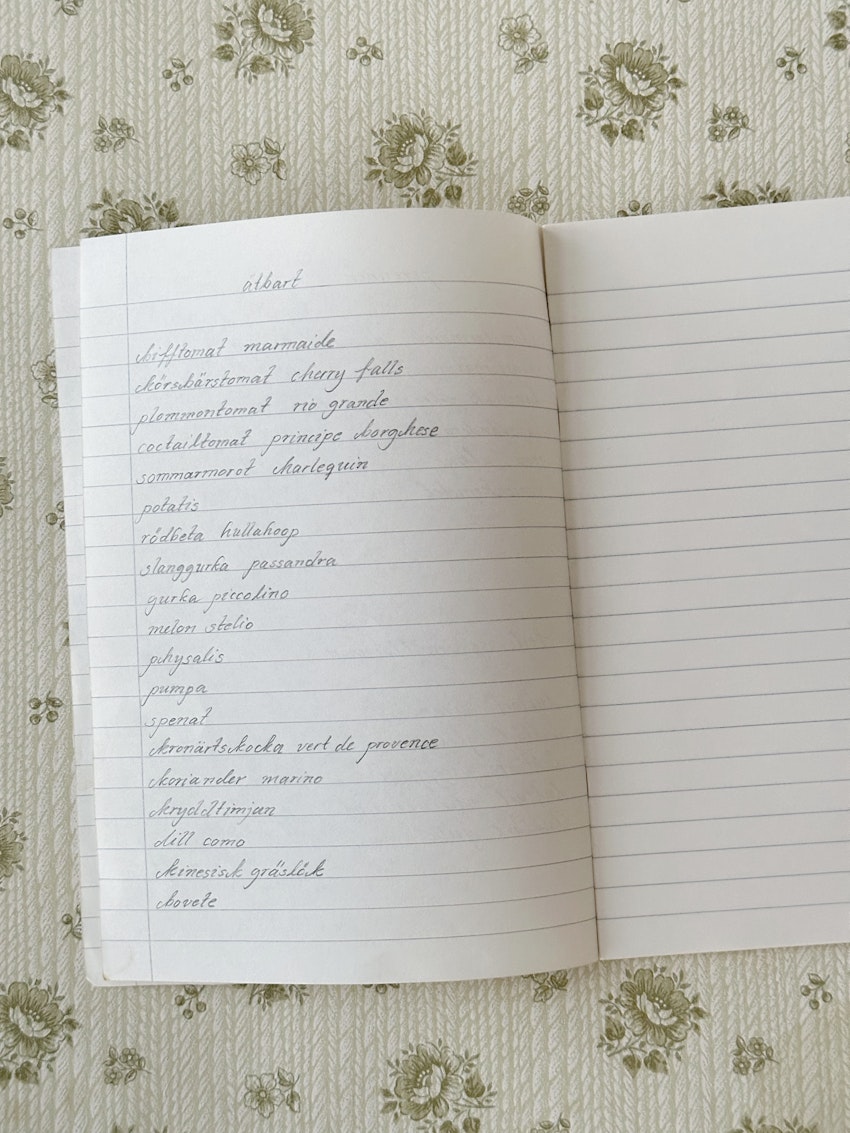 ätbart
bifftomat marmaide
körsbärstomat cherry falls
plommontomat rio grande
coctailtomat principe borghese
sommarmorot harlequin
potatis
rödbeta hullahoop
slanggurka passandra
gurka piccolino
melon stelio
physalis
pumpa
spenat
kronärtskocka vert de provence
koriander marino
kryddtimjan
dill como
kinesisk gräslök
bovete